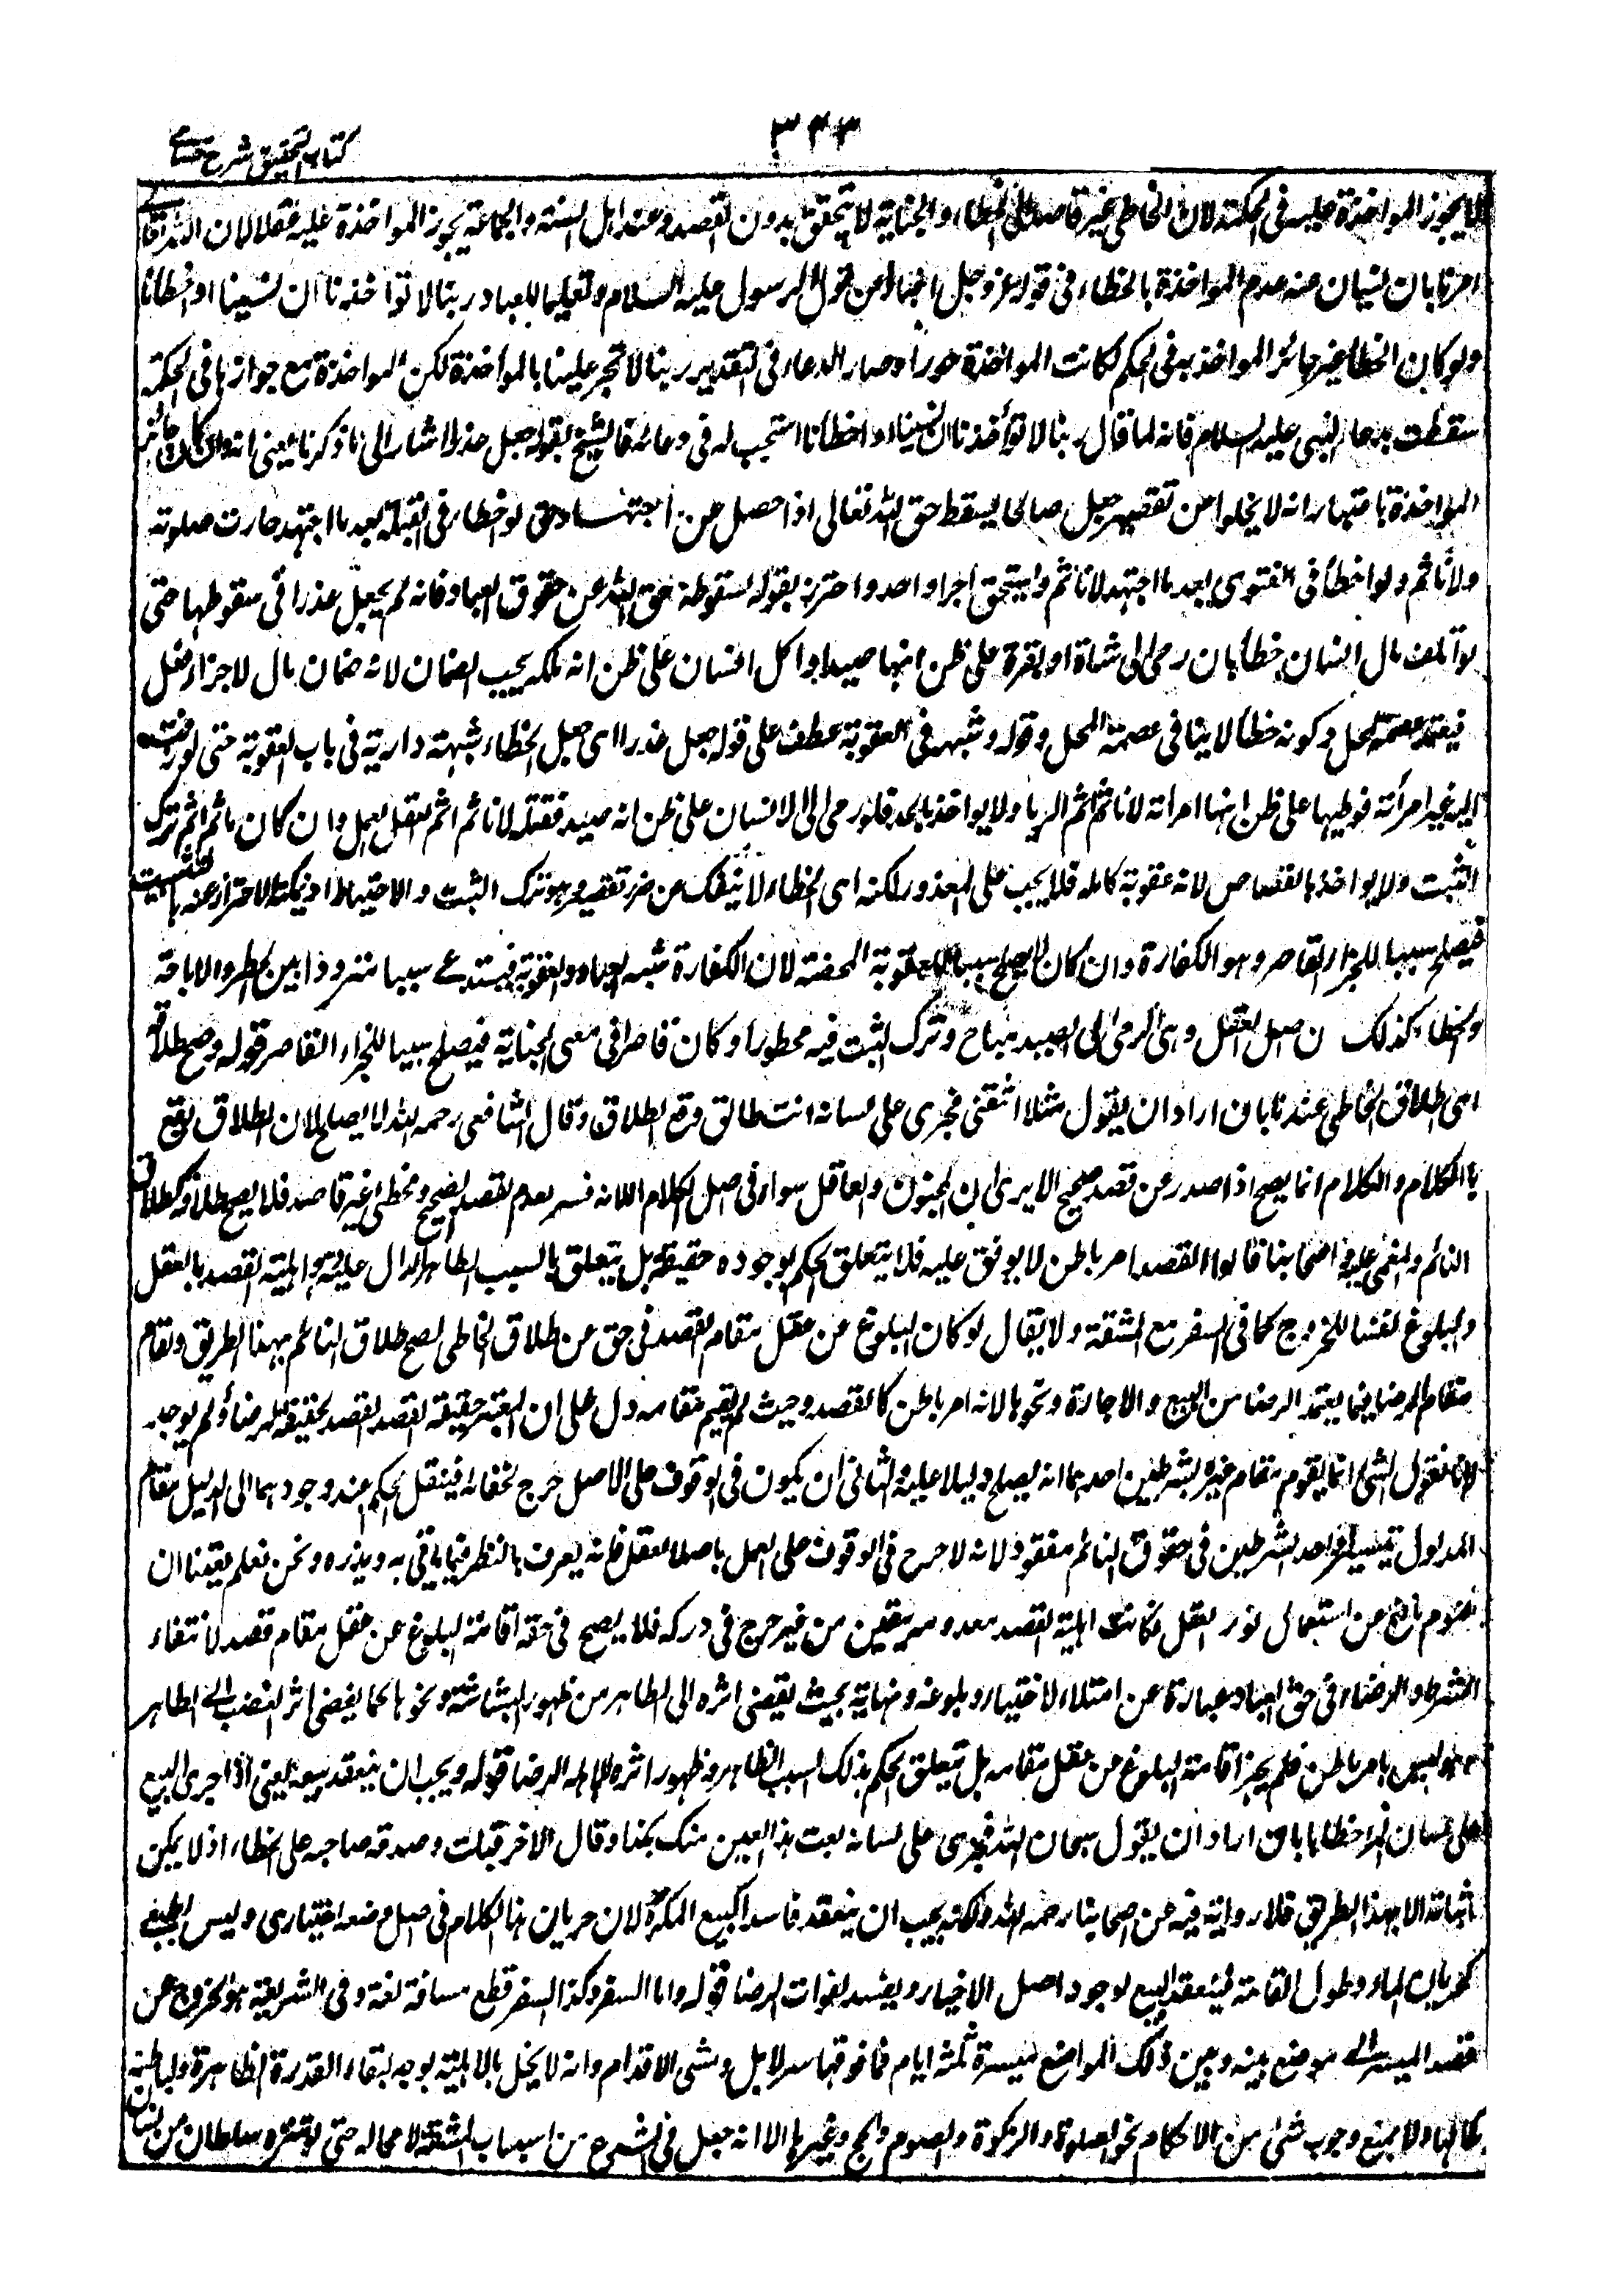 ٣٤٣
كتاب التحقيق شرح حسامى
لا يجوز المواخذة عليه فى الحكمة لان الخاطى غير قاصد على الخطاء والجناية لا يتحقق بدون القصد وعند اهل السنة والجماعة يجوز المواخذة عليه عقلا لان الله تعالى
امرنا بان نسئال عنه عدم المواخذة بالخطاء فى قوله عز وجل اخبارا من قول الرسول عليه السلام وتعليما للعباد ربنا لا تواخذنا ان نسينا او اخطأنا
ولو كان الخطأ غير جائز المواخذ به فى الحكم لكانت المواخذة جورا وصار الدعاء فى التقدير ربنا لا تجر علينا بالمواخذة لكن المواخذة مع جوازها فى الحكمة
سقطت بدعاء النبى عليه السلام فانه لما قال ربنا لا تواخذنا ان نسينا او اخطأنا استجيب له فى دعائه فالشيخ بقوله جعل عذرا اشار الى ما ذكرنا يعنى انه وان كان جائز
المواخذة باعتبار انه لا يخلوا من تقصير جعل صالحا يسقط حق الله تعالى اذا حصل عن اجتهاد حتى لو اخطاء فى القبلة بعد ما اجتهد جازت صلوته
ولا ياثم ولو اخطأ فى الفتوى بعد ما اجتهد لا ياثم ويستحق اجرا واحدا واحترز بقوله لسقوط حق الله عن حقوق العباد فانه لم يجعل عذرا فى سقوطها حتى
لو اتلف مال انسان خطأ بان رمى الى شاة او بقرة على ظن انها صيد او اكل انسان على ظن انه ملكه يجب الضمان لانه ضمان مال لا جزاء فعل
فيعتمد عصمة المحل وكونه خطأ لا ينافى عصمة المحل وقوله وشبهه فى العقوبة عطف على قوله جعل عذرا اى جعل الخطاء شبهة دارية فى باب العقوبة حتى لو زفت
اليه غير امرأته فوطيها على ظن انها امرأته لا ياثم اثم الزنا ولا يواخذ بالحد فلو رمى الى انسان على ظن انه صيد فقتله لا ياثم اثم القتل العمد وان كان ياثم اثم ترك
التثبت ولا يواخذ بالقصاص لانه عقوبة كامله فلا يجب على المعذور لكنه اى الخطاء لا ينفك عن ضرب تقصير وهو ترك التثبت والاحتياط اذ يمكنه الاحتراز عنه بالتثبت
فيصلح سببا للجزاء القاصر وهو الكفارة وان كان لا يصلح سببا للعقوبة المحضة لان الكفارة شبه العبادة والعقوبة فيستدعى سببا مترددا بين الحظر والاباحة
والخطاء كذلك اصل الفعل وهى الرمى الى الصيد مباح وترك التثبت فيه محظورا وكان قاصرا فى معنى الجناية فيصلح سببا للجزاء القاصر قوله وصح طلاقه
اى طلاق الخاطى عندنا بان اراد ان يقول مثلا اسقنى فجرى على لسانه انت طالق وقع الطلاق وقال الشافعى رحمه الله لا يصح لان الطلاق يقع
بالكلام والكلام انما يصح اذا صدر عن قصد صحيح الا يرى ان المجنون والعاقل سواء فى اصل الكلام الا انه فسد بعدم القصد الصحيح والمخطى غير قاصد فلا يصح طلاقه كطلاق
النائم والمغمى عليه واصحابنا قالوا القصد امر باطن لا يوقف عليه فلا يتعلق الحكم بوجوده حقيقة بل يتعلق بالسبب الظاهر الدال عليه وهو اهلية القصد بالعقل
والبلوغ نفيا للحرج كما فى السفر مع المشقة ولا يقال لو كان البلوغ عن عقل مقام القصد فى حق من طلاق الخاطى لصح طلاق النائم بهذا الطريق ولقام
مقام الرضا فيما يعتمد الرضا من البيع والاجارة ونحوها لانه امر باطن كالقصد وحيث لم يقم مقامه دل على ان المعتبر حقيقة القصد ولم يوجد
لانا نقول الشئ انما يقوم مقام غيره بشرطين احدهما انه يصلح دليلا عليه والثانى ان يكون فى الوقوف على الاصل حرج لخفائه فينقل الحكم عند وجودهما الى الدليل مقام
المدلول تيسيرا فاحد الشرطين فى حقوق النائم مفقود لانه لا حرج فى الوقوف على العمل باصل العقل فانه يعرف بالنظر فيما ياتى به ويذره ونحن نعلم يقينا ان
النوم مانع عن استعمال نور العقل فكانت اهلية القصد معدومة بيقين من غير حرج فى دركه فلا يصح فى حقه اقامة البلوغ عن عقل مقام قصد لانتفاء
الشرط والرضاء فى حق العباد عبارة عن امتلاء الاختيار وبلوغه ونهايته بحيث يفضى اثره الى الظاهر من ظهور البشاشة ونحوها كما يفضى اثر الغضب الى الظاهر
وهو ليس بامر باطن فلم يجز اقامة البلوغ عن عقل مقامه بل يتعلق الحكم بذلك السبب الظاهر وظهور اثره الرضا قوله ويجب ان ينعقد بيعه يعنى اذا جرى البيع
على لسان المرء خطأ بان اراد ان يقول سبحان الله فجرى على لسانه بعت هذا العين منك بكذا وقال الاخر قبلت وصدقه صاحبه على الخطاء اذ لا يمكن
اثباته الا بهذا الطريق فلا رواية فيه عن اصحابنا رحمهم الله ولكنه يجب ان ينعقد فاسدا كبيع المكره لان جريان هذا الكلام فى اصل وضعه اختيارى وليس بطبعى
كجريان الماء وطول القامة فينعقد البيع لوجود اصل الاختيار ويفسد لفوات الرضا قوله واما السفر وكذا السفر قطع مسافة لغة وفى الشريعة هو الخروج عن
قصد المسير الى موضع بينه وبين ذلك المواضع مسيرة ثلثة ايام فما فوقها سير الابل ومشى الاقدام وانه لا يخل بالاهلية بوجه لبقاء القدرة الظاهرة والباطنة
بكمالها ولا يمنع وجوب شئ من الاحكام نحو الصلوة والزكوة والصوم والحج وغيرها الا انه جعل فى الشرع من اسباب المشقة لا محالة حتى لو تنزه سلطان من بستان